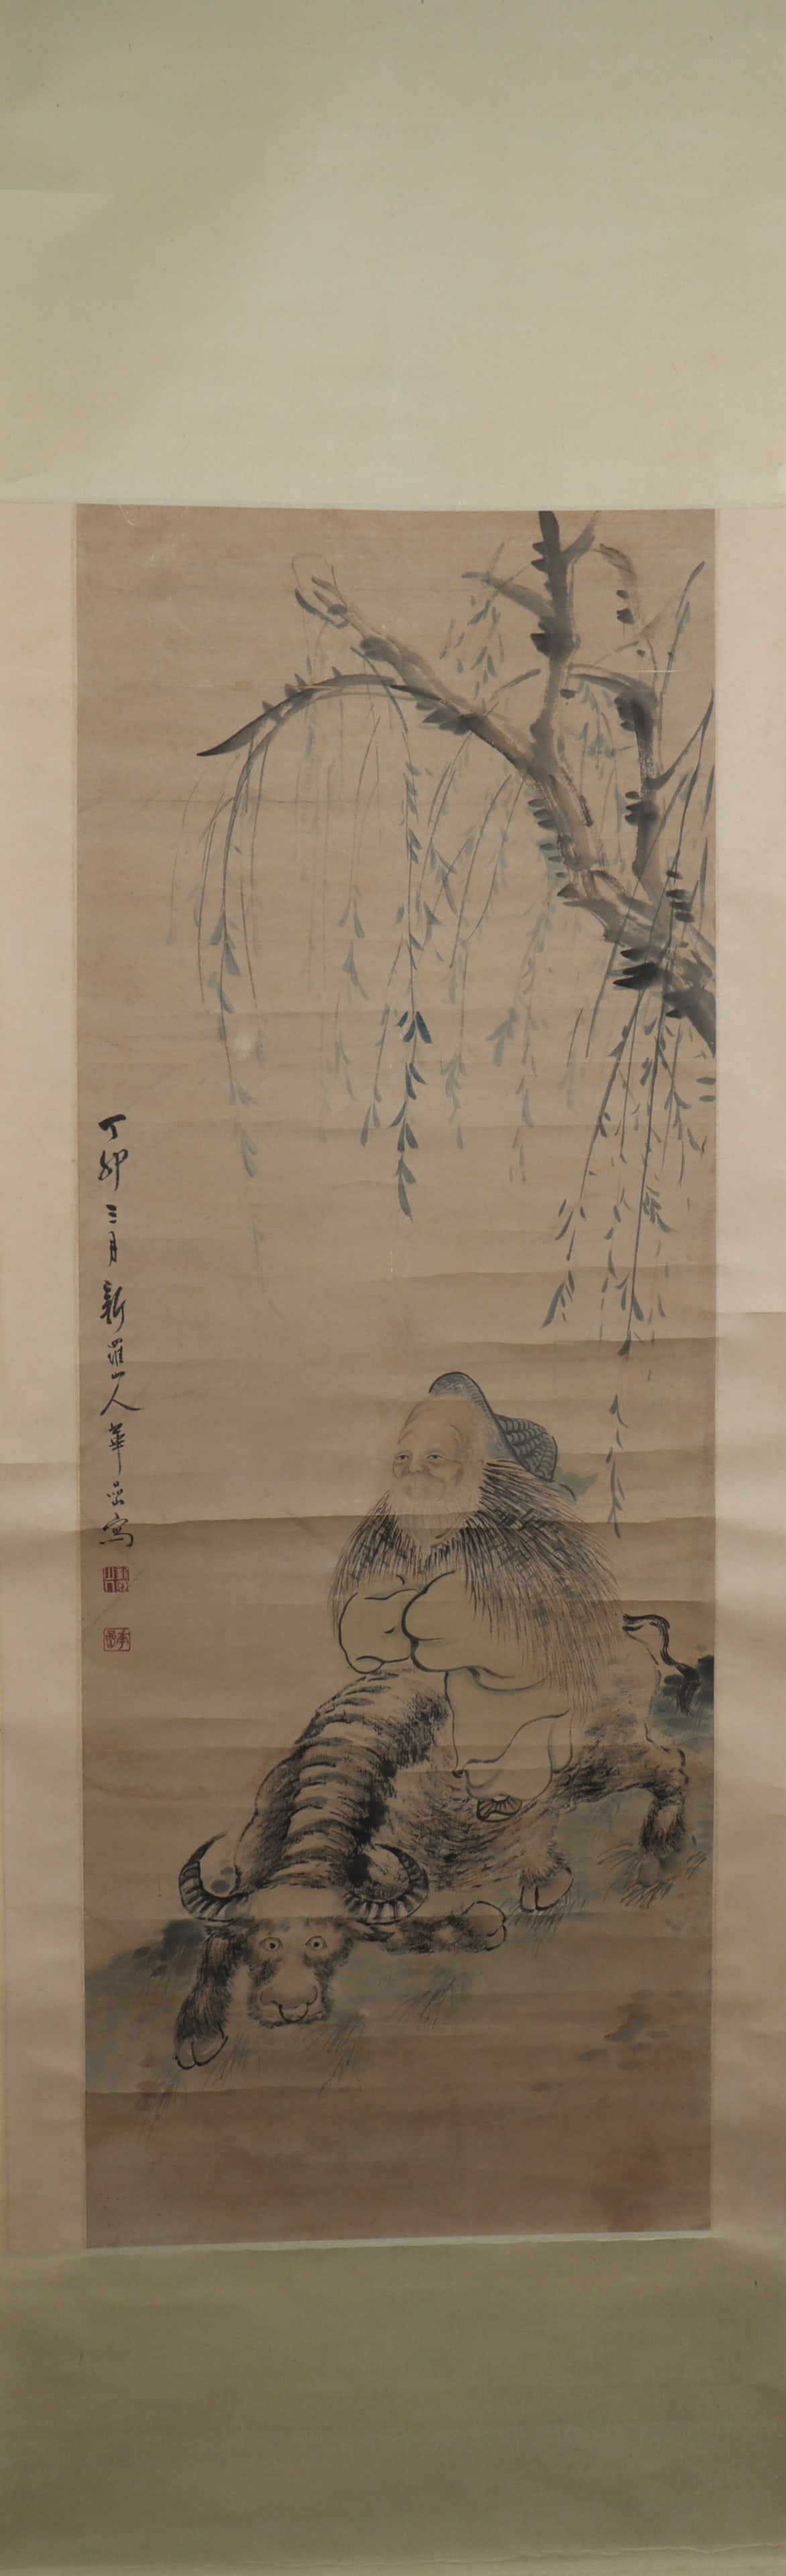 丁卯三月新羅山人華嵒寫